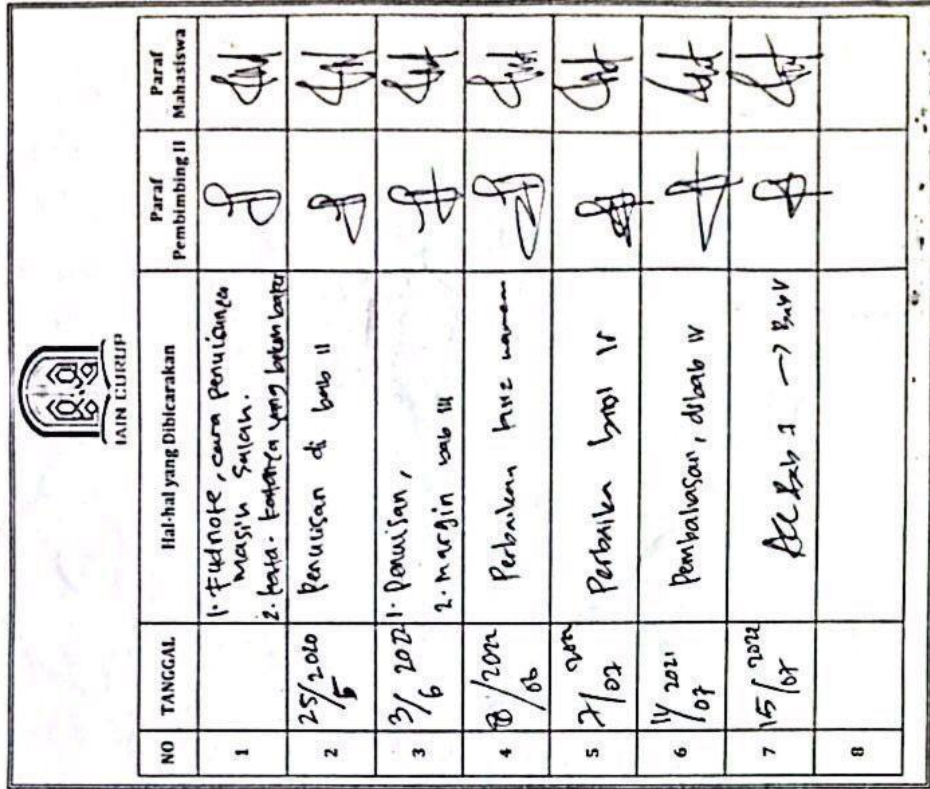 IAIN CURUP
NO TANGGAL Hal-hal yang Dibicarakan Paraf Pembimbing II Paraf Mahasiswa
1 1. Fudnote, cara penulisannya
masih salah.
2. kata-katanya yang
2 25/5 2020 Penulisan di bab II
3 3/6 2022 1. Penulisan,
2. margin bab III
4 /06 2022 Perbaikan
5 7/07 Perbaika bab IV
6 14/07 2021 Pembahasan, dibab IV
7 15/07 2022 ACC Bab 1 → Bab V
8